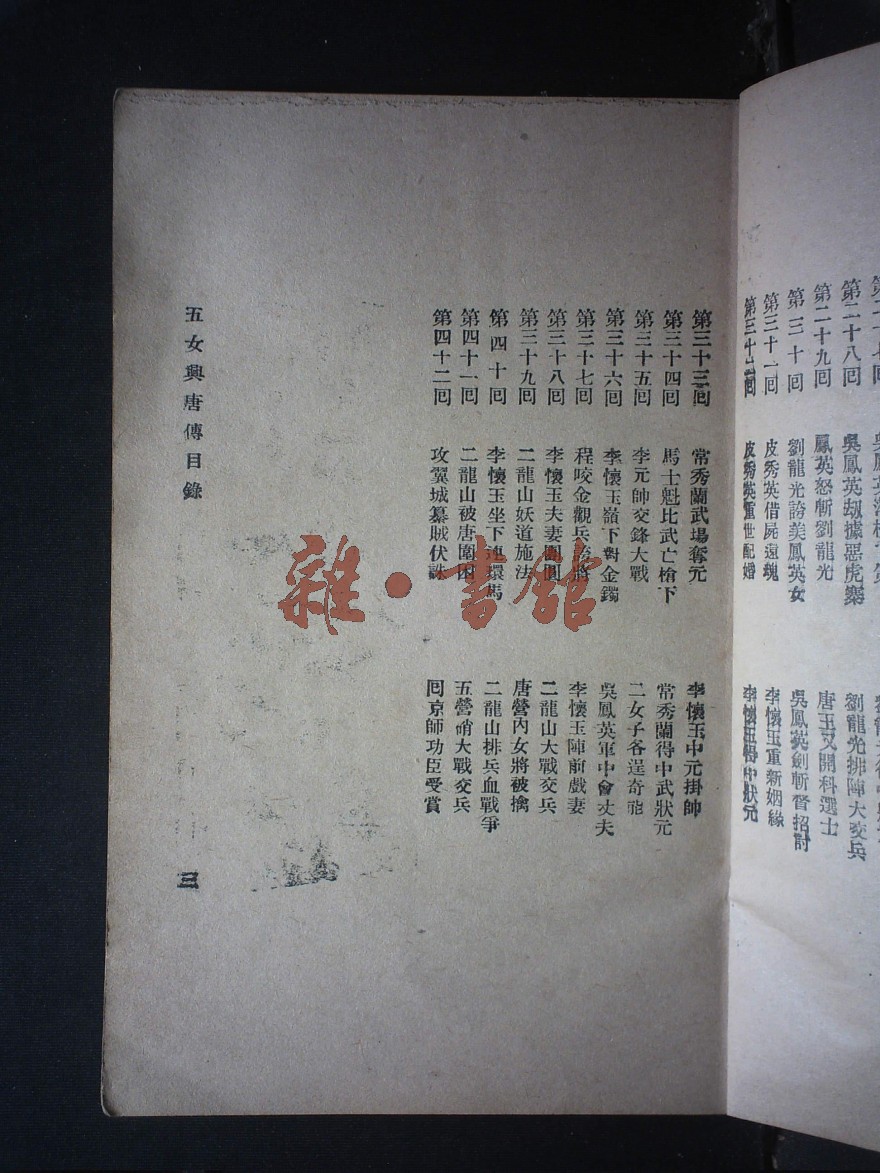 第二十八回 吳鳳英刼據惡虎寨 劉龍光排陣大交兵
第二十九回 鳳英怒斬劉龍光 唐王又開科選士
第三十回 劉龍光誇美鳳英女 吳鳳英劍斬督招討
第三十一回 皮秀英借屍還魂 李懷玉重新姻緣
第三十二回 皮秀英重世配婚 李懷玉得中狀元
第三十三回 常秀蘭武場奪元 李懷玉中元掛帥
第三十四回 馬士魁比武亡槍下 常秀蘭得中武狀元
第三十五回 李元帥交鋒大戰 二女子各逞奇能
第三十六回 李懷玉嶺下對金鐲 吳鳳英軍中會丈夫
第三十七回 程咬金觀兵 將 李懷玉陣前戲妻
第三十八回 李懷玉夫妻團圓 二龍山大戰交兵
第三十九回 二龍山妖道施法 唐營內女將被擒
第四十回 李懷玉坐下連環馬 二龍山排兵血戰爭
第四十一回 二龍山被唐圍困 五營哨大戰交兵
第四十二回 攻翼城纂賊伏誅 回京師功臣受賞
五女興唐傳目錄
三
雜·書館